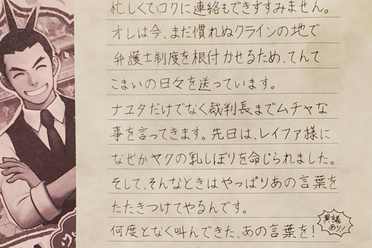 忙しくてロクに連絡もできずすみません。
オレは今、まだ慣れぬクラインの地で
弁護士制度を根付かせるため、てんて
こまいの日々を送っています。
ナユタだけでなく裁判長までムチャな
事を言ってきます。先日は、レイファ様に
なぜかヤクの乳しぼりを命じられました。
そして、そんなときはやっぱりあの言葉を
たたきつけてやるんです。
何度となく叫んできた、あの言葉を!
異議
あり!